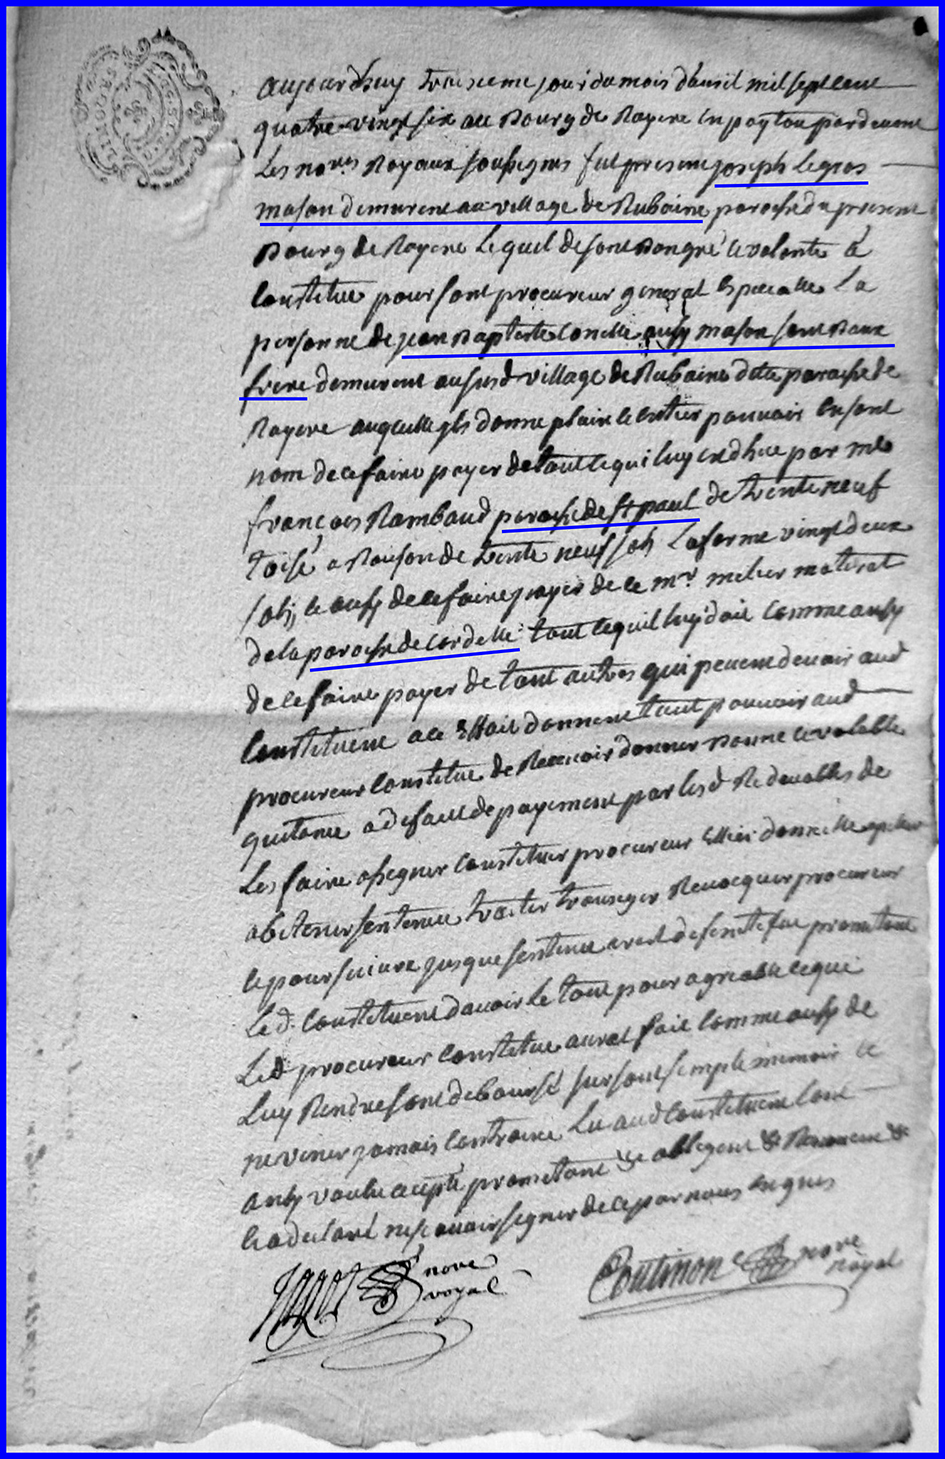 aujourdhuy treizieme jour du mois davril mil sept cent
quatre-vingt six au Bourg de Royere en poytou pardevant
Les nores Royaux soussignes fut present joseph Legros
mason demurent au village de Rubaine paroisse du present
Bourg de Royere Lequel de sont Bon gré et volonté a
Constitue pour sont procureur general Especialle La
personne de jean Baptiste Conelle ausy mason sont Baux
frere demurent ausurd village de Rubaine dite paroisse de
Royere auquelle yls donne plain et entier pouvoir en sont
nom de ce faire payer de tout ce qui luy est dhue par me
françois Rambaud paroisse de st paul de trente neuf
toise a Raison de trente neuf sols La forme vingt deux
sols, et ausy de ce faire payer de le mr melier materat
de la paroisse de Cordelle tout ce quil luy doit Comme ausy
de ce faire payer de tout autres qui peuvent devoir aud
Constituent a ce Effait donnent tout pouvoir aud
procureur Constitue de Recevoir donner Bonne et valable
quitance a defaut de payement par lesd Redevables de
Les faire assegner Constituer procureur Ellire domicille
obtenir sentence traiter transiger Revocquer procureur
et poursuivre jusque sentence arest definitif promettant
Led. Constituent davoir Le tout pour agreable ce que
Led procureur Constitue aurat fait Comme ausy de
Luy Rendre sont deboursé sur sont simple memoir et
ne venir jamais Contraire Lu aud Constituent
ausy voulu accepté promettant &c obligent & Renoncent &
et a declaré ne scavoir signer de ce par nous enquis
nore royal
Coutinon nore royal